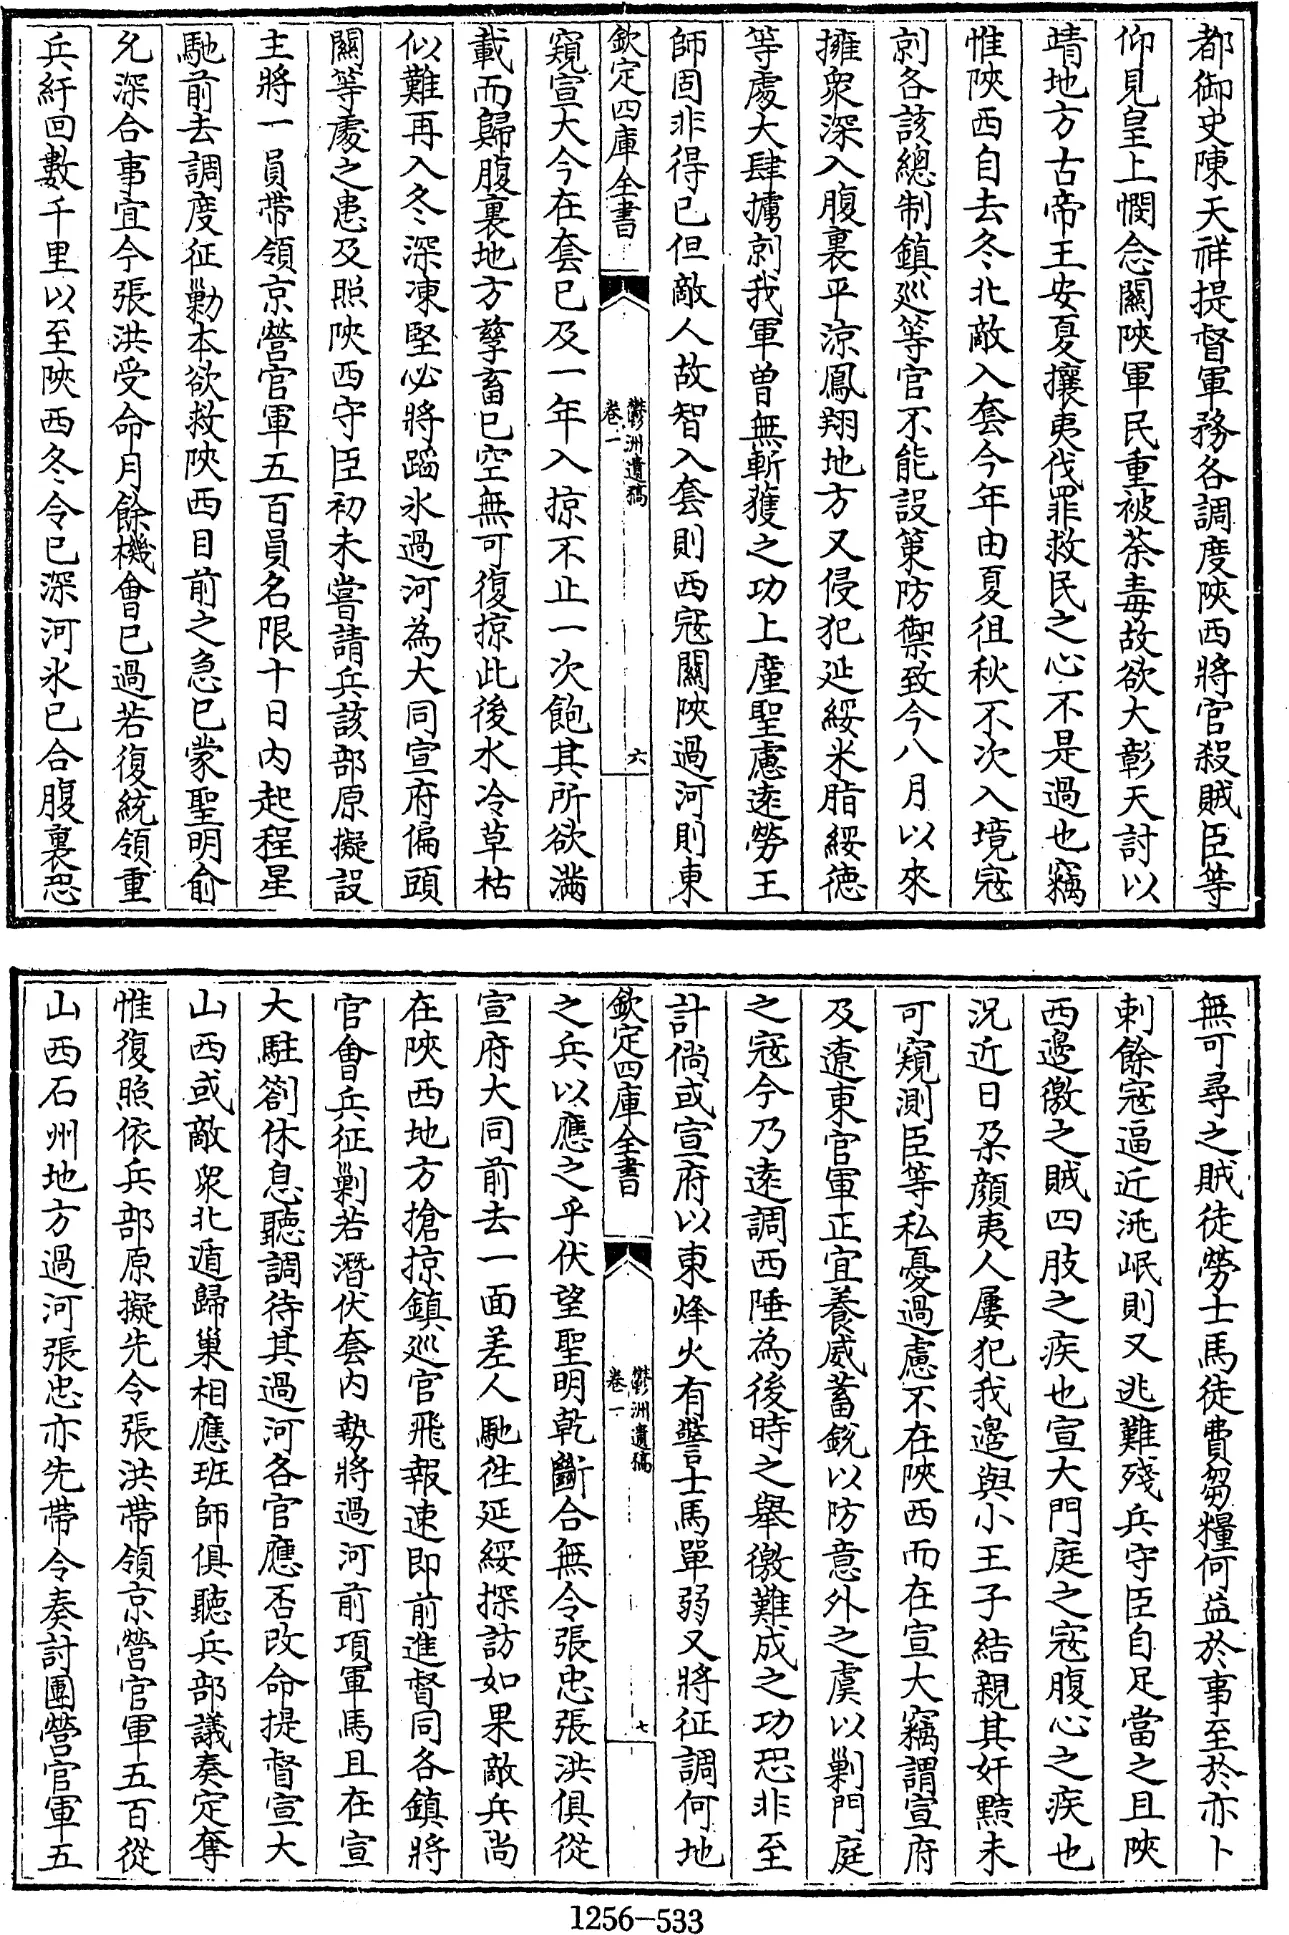 都御史陳天祥提督軍務各調度陝西將官殺賊臣等
仰見皇上憫念關陝軍民重被荼毒故欲大彰天討以
靖地方古帝王安夏攘夷伐罪救民之心不是過也竊
惟陝西自去冬北敵入套今年由夏徂秋不次入境寇
剠各該總制鎮巡等官不能設策防禦致今八月以來
擁衆深入腹裏平涼鳳翔地方又侵犯延綏米脂綏德
等處大肆擄剠我軍曽無斬獲之功上廑聖慮逺勞王
師固非得已但敵人故智入套則西寇關陝過河則東
欽定四庫全書
鬱洲遺稿
卷一
六
窺宣大今在套已及一年入掠不止一次飽其所欲滿
載而歸腹裏地方孳畜已空無可復掠此後水冷草枯
似難再入冬深凍堅必將蹈氷過河為大同宣府偏頭
關等處之患及照陝西守臣初未嘗請兵該部原擬設
主將一員帶領京營官軍五百員名限十日内起程星
馳前去調度征勦本欲救陝西目前之急已蒙聖明俞
允深合事宜今張洪受命月餘機會已過若復統領重
兵紆回數千里以至陝西冬令已深河氷已合腹裏恐
無可尋之賊徒勞士馬徒費芻糧何益於事至於亦卜
剌餘寇逼近洮岷則又逃難殘兵守臣自足當之且陝
西邊徼之賊四肢之疾也宣大門庭之寇腹心之疾也
況近日朶顔夷人屢犯我邊與小王子結親其奸黠未
可窺測臣等私憂過慮不在陝西而在宣大竊謂宣府
及遼東官軍正宜養威蓄銳以防意外之虞以剿門庭
之寇今乃逺調西陲為後時之舉徼難成之功恐非至
計倘或宣府以東烽火有警士馬單弱又將征調何地
欽定四庫全書
鬱洲遺稿
卷一
七
之兵以應之乎伏望聖明乾斷合無令張忠張洪俱從
宣府大同前去一面差人馳徃延綏探訪如果敵兵尚
在陝西地方搶掠鎮巡官飛報速即前進督同各鎮將
官會兵征剿若潛伏套内勢將過河前項軍馬且在宣
大駐劄休息聽調待其過河各官應否改命提督宣大
山西或敵衆北遁歸巢相應班師俱聽兵部議奏定奪
惟復照依兵部原擬先令張洪帶領京營官軍五百從
山西石州地方過河張忠亦先帶令奏討團營官軍五
1256-533